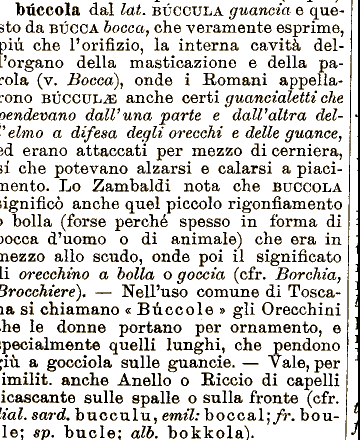 búccola dal lat. BÚCCULA guancia e que-
sto da BÚCCA bocca, che veramente esprime,
più che l'orifizio, la interna cavità del-
l'organo della masticazione e della pa-
rola (v. Bocca), onde i Romani appella-
rono BÚCCULÆ anche certi guancialetti che
pendevano dall'una parte e dall'altra del-
l'elmo a difesa degli orecchi e delle guance,
ed erano attaccati per mezzo di cerniera,
sí che potevano alzarsi e calarsi a piaci-
mento. Lo Zambaldi nota che BUCCOLA
significò anche quel piccolo rigonfiamento
o bolla (forse perché spesso in forma di
bocca d'uomo o di animale) che era in
mezzo allo scudo, onde poi il significato
di orecchino a bolla o goccia (cfr. Borchia,
Brocchiere). — Nell'uso comune di Tosca-
na si chiamano « Búccole » gli Orecchini
che le donne portano per ornamento, e
specialmente quelli lunghi, che pendono
giù a gocciola sulle guancie. — Vale, per
similit. anche Anello o Riccio di capelli
ricascante sulle spalle o sulla fronte (cfr.
dial. sard. bucculu, emil: boccal; fr. bou-
cle; sp. bucle; alb. bokkola).